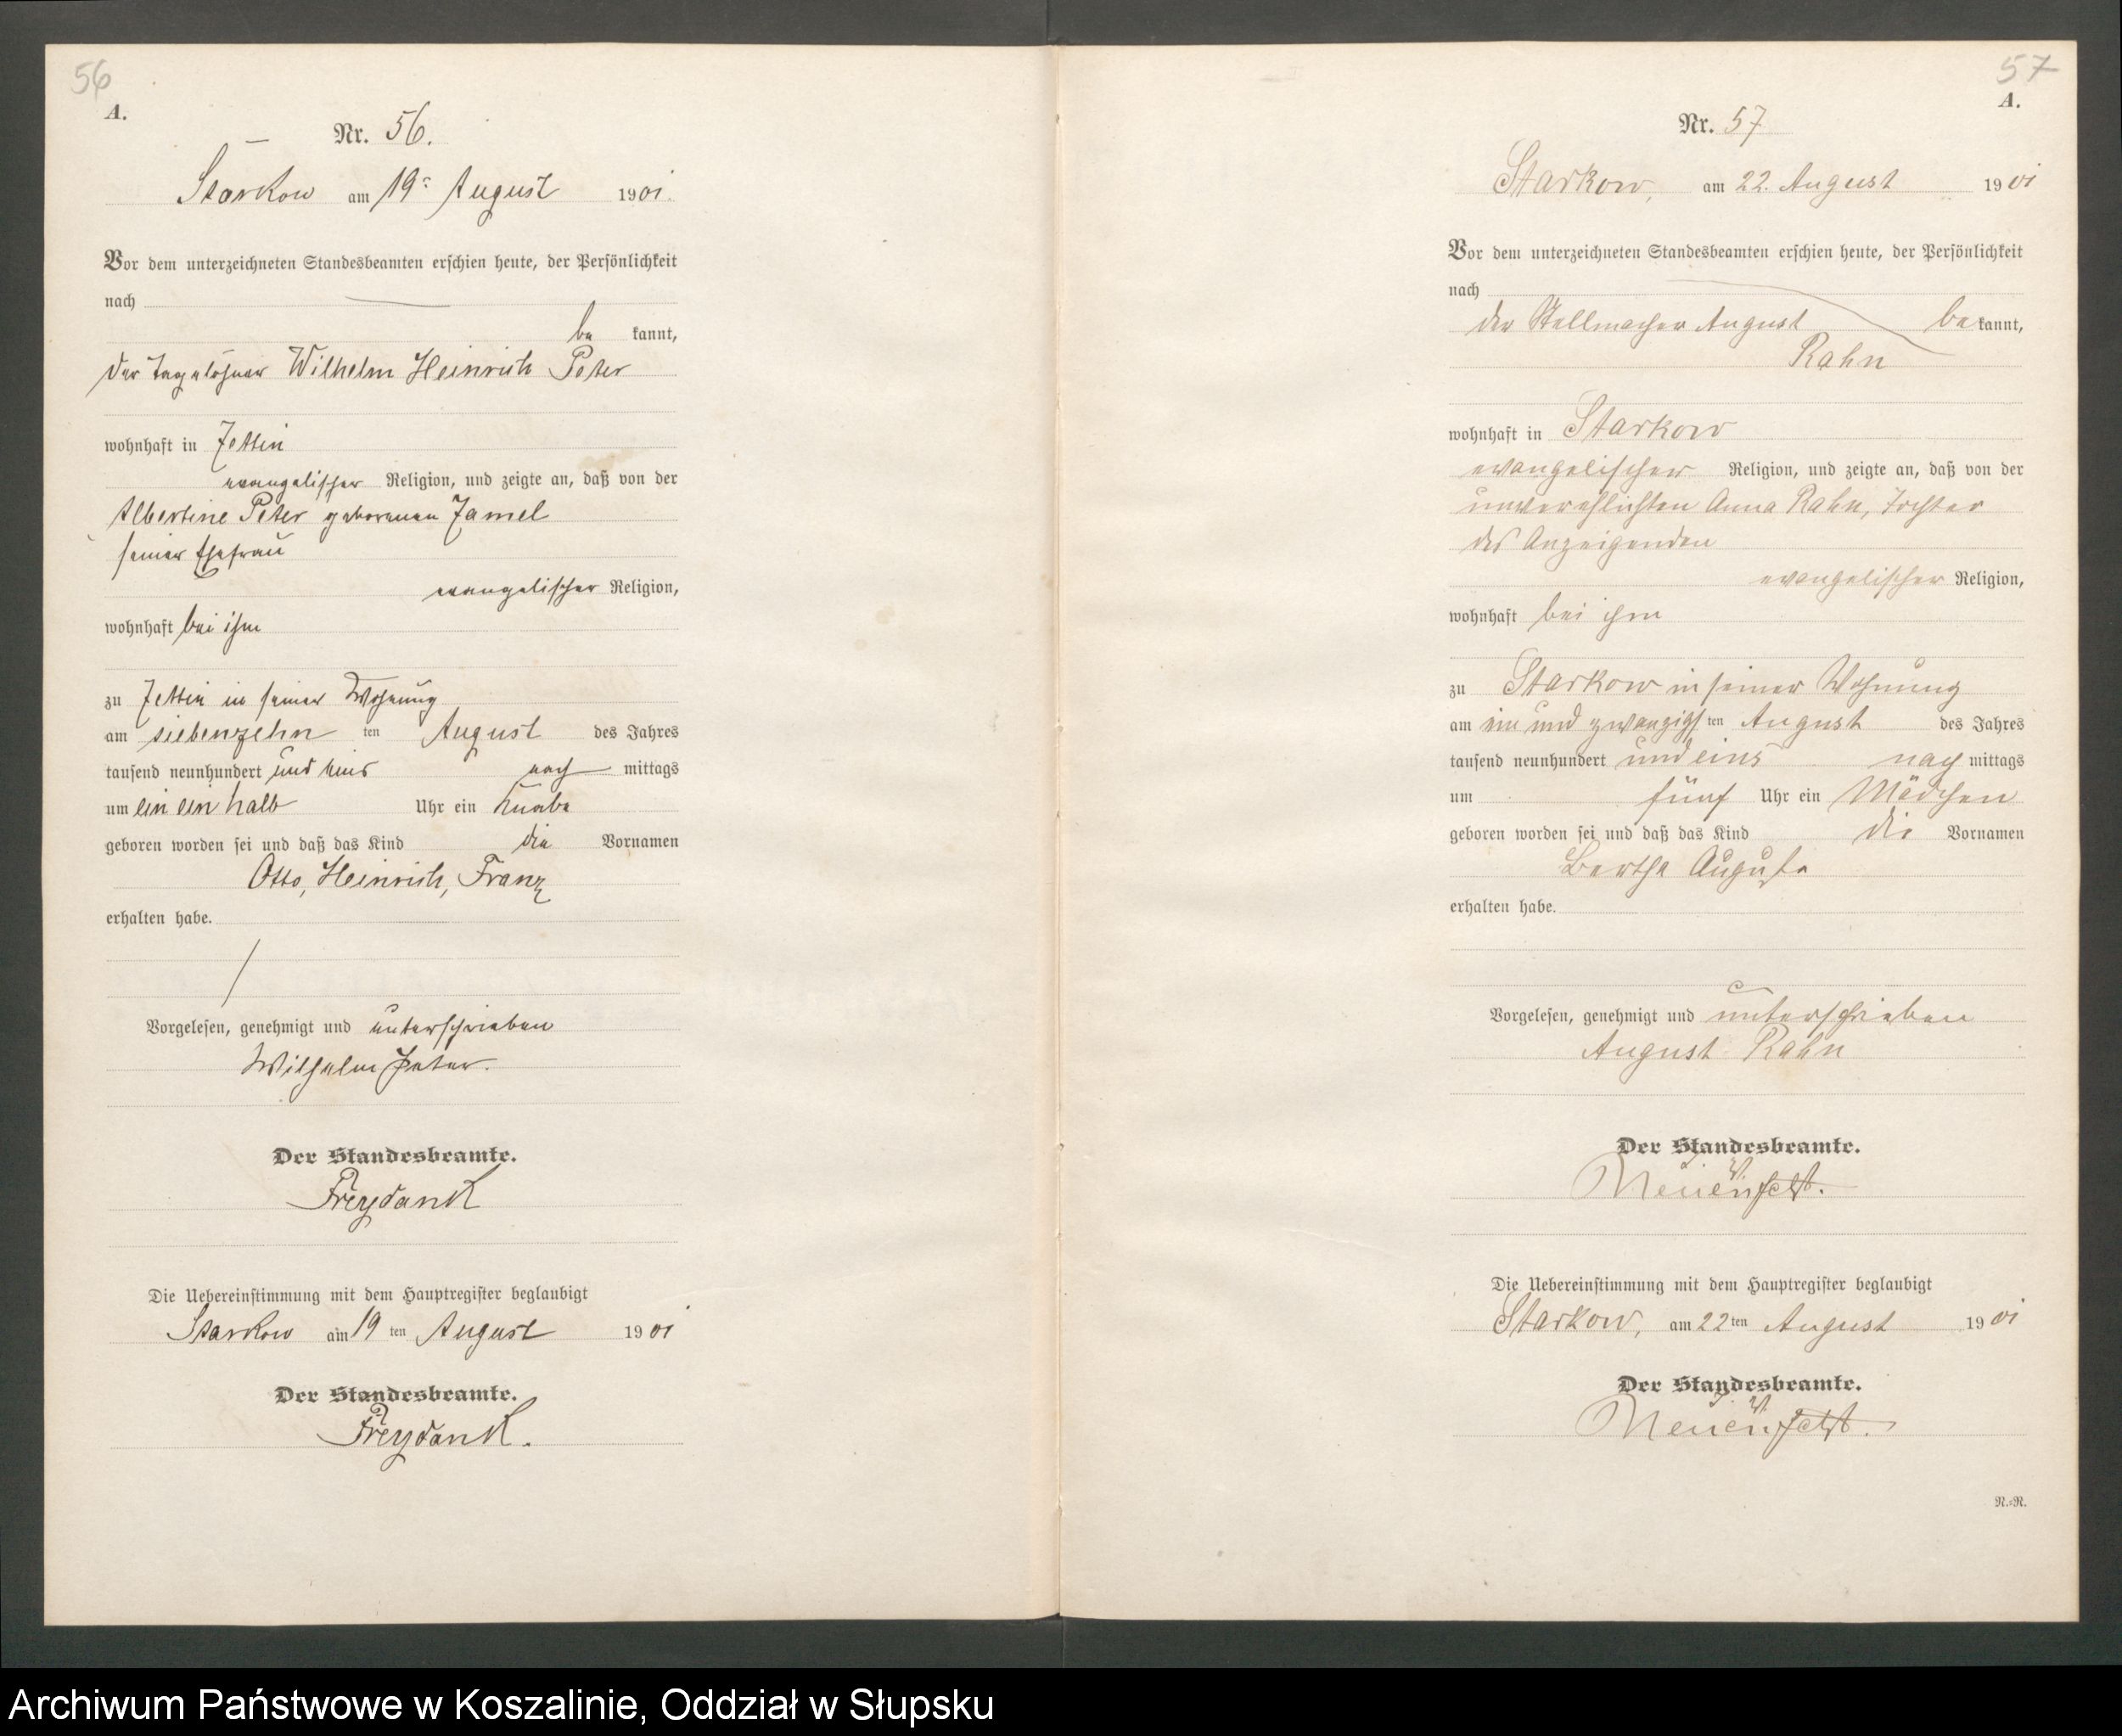 56
A.
Nr. 56.
Starkow am 19ᵗ August 1901.
Vor dem unterzeichneten Standesbeamten erschien heute, der Persönlichkeit
nach
be kannt,
der Tagelöhner Wilhelm Heinrich Peter
wohnhaft in Zettin
evangelischer Religion, und zeigte an, daß von der
Albertine Peter geborenen Zamel
seiner Ehefrau
evangelischer Religion,
wohnhaft bei ihm
zu Zettin in seiner Wohnung
am siebenzehn ten August des Jahres
tausend neunhundert und eins nach mittags
um ein ein halb Uhr ein Knabe
geboren worden sei und daß das Kind die Vornamen
Otto, Heinrich, Franz
erhalten habe.
Vorgelesen, genehmigt und unterschrieben
Wilhelm Peter.
Der Standesbeamte.
Freydank
Die Uebereinstimmung mit dem Hauptregister beglaubigt
Starkow am 19 ten August 1901
Der Standesbeamte.
Freydank.
57
A.
Nr. 57
Starkow, am 22. August 1901
Vor dem unterzeichneten Standesbeamten erschien heute, der Persönlichkeit
nach
der Stellmacher August bekannt,
Rahn
wohnhaft in Starkow
evangelischer Religion, und zeigte an, daß von der
unverehlichten Anna Rahn, Tochter
des Anzeigenden
evangelischer Religion,
wohnhaft bei ihm
zu Starkow in seiner Wohnung
am ein und zwanzigsten August des Jahres
tausend neunhundert und eins nach mittags
um fünf Uhr ein Mädchen
geboren worden sei und daß das Kind die Vornamen
Bertha Auguste
erhalten habe.
Vorgelesen, genehmigt und unterschrieben
August Rahn
Der Standesbeamte.
Die Uebereinstimmung mit dem Hauptregister beglaubigt
Starkow, am 22ten August 1901
Der Standesbeamte.
R.-R.
Archiwum Państwowe w Koszalinie, Oddział w Słupsku